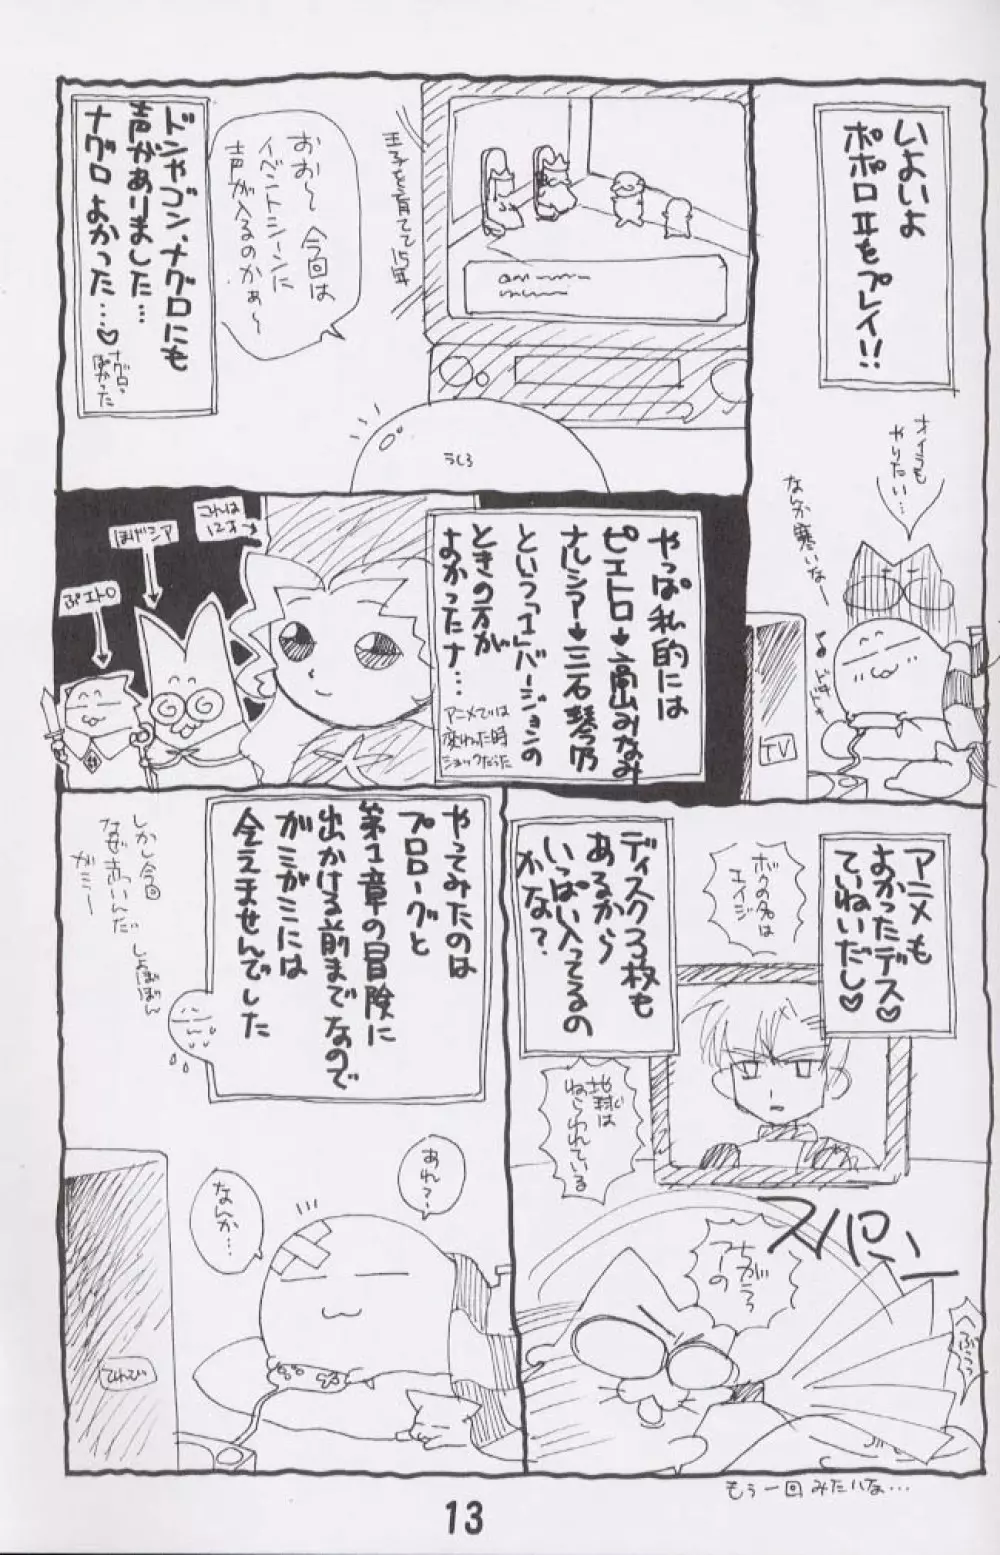 いよいよ
ポポロⅡを
プレイ!!
オイラも
やりたい…
なんか寒いなー
TV
王子を育てて15年
うしろ
おお〜今回は
イベントシーンに
声が入るのかぁ〜
ドンやゴン、ナグロにも
声がありました…
ナグロよかった…♡
ナグロ、
ぽかった
やっぱ私的には
ピエトロ→高山みなみ
ナルシア→三石琴乃
という「1」バージョンの
ときの方が
よかったナ…
アニメでは
変わった時
ショックだった
これは
12才
ほげシア
ぷエトロ
アニメも
よかったデス♡
ていねいだし♡
ボクの名は
エイジ
地球は
ねらわれている
ディスク3枚も
あるから
いっぱい入ってるの
かな?
スパーン
ちがうっ
アーの
へぶぅっ
もう一回みたいな…
やってみたのは
プロローグと
第1章の冒険に
出かける前までなので
ガミガミには
会えませんでした
しかし今回
なぜ赤いんだ
ガミー
しょぼぼん
あれ?
なんか…
てれび
13